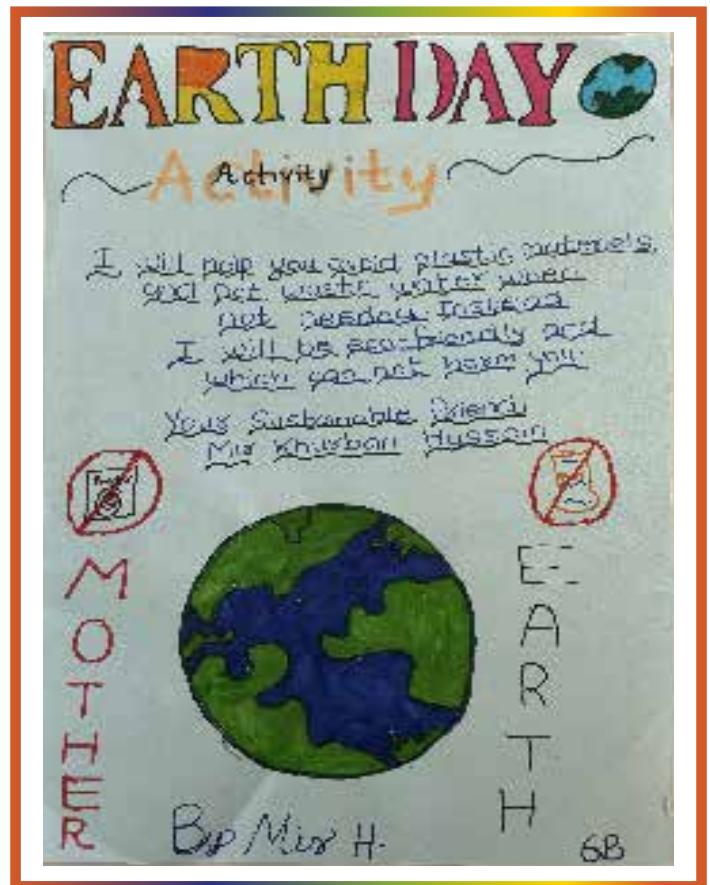 EARTH DAY
Activity
Activity
I will help you avoid plastic materials,
and not waste water when
not needed. Instead
I will be ecofriendly and
which can not harm you.
Your Sustainable Friend
Mir Khurban Hussain
MOTHER
EARTH
By Mir H.
6B